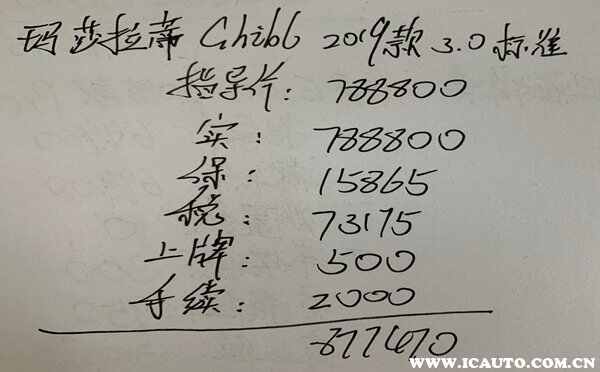 玛莎拉蒂 Ghibli 2019款 3.0 标准
指导价: 788800
实: 788800
保: 15865
税: 73175
上牌: 500
手续: 2000
WWW.ICAUTO.COM.CN